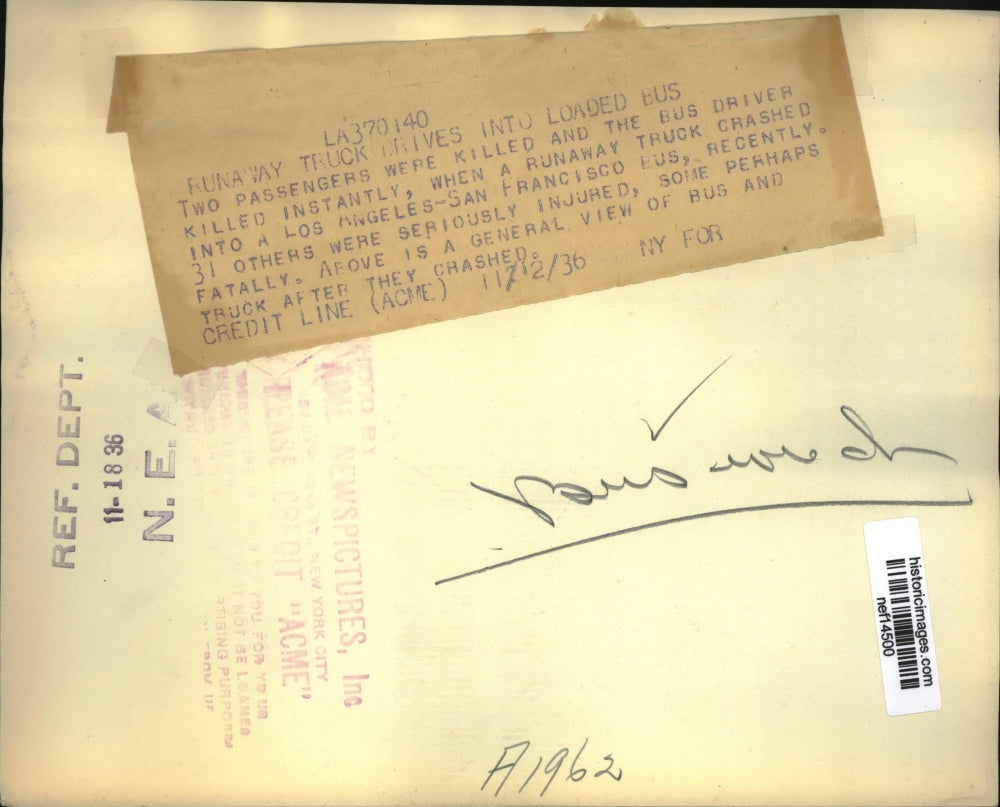 LA370140
RUNAWAY TRUCK DRIVES INTO LOADED BUS
TWO PASSENGERS WERE KILLED AND THE BUS DRIVER
KILLED INSTANTLY, WHEN A RUNAWAY TRUCK CRASHED
INTO A LOS ANGELES-SAN FRANCISCO BUS, RECENTLY.
31 OTHERS WERE SERIOUSLY INJURED, SOME PERHAPS
FATALLY. ABOVE IS A GENERAL VIEW OF BUS AND
TRUCK AFTER THEY CRASHED.
CREDIT LINE (ACME) 11/12/36 NY FOR
REF. DEPT.
11-18 36
N. E. A
PHOTO BY
ACME NEWSPICTURES, Inc
NEW YORK CITY
PLEASE CREDIT "ACME"
YOU FOR YOUR
NOT BE LOANED
PURPOSES
A1962
historicimages.com
nef14500